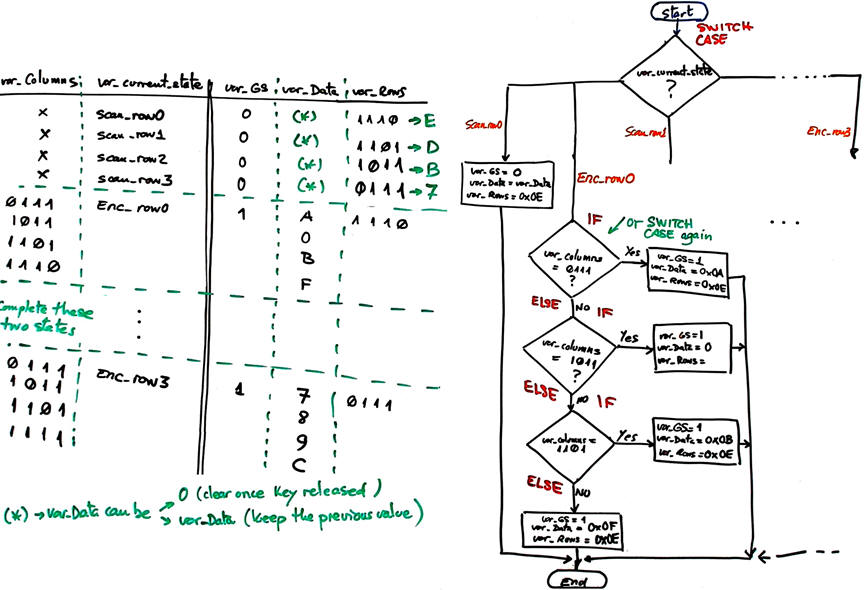 var_Columns: var_current_state var_GS var_Data var_Rows
x scan_row0 0 (*) 1110 → E
x scan_row1 0 (*) 1101 → D
x scan_row2 0 (*) 1011 → B
x scan_row3 0 (*) 0111 → 7
0111 Enc_row0 1 A 1110
1011 0
1101 B
1110 F
Complete these
two states
0111 Enc_row3 1 7 0111
1011 8
1101 9
1111 C
(*) → var_Data can be
0 (clear once key released)
var_Data (keep the previous value)
Start
SWITCH
CASE
var_current_state
?
Scan_row0
Scan_row1
Enc_row3
var_GS = 0
var_Data = var_Data
var_Rows = 0x0E
Enc_row0
IF
or SWITCH
CASE again
var_columns
= 0111
?
Yes
var_GS=1
var_Data = 0x0A
var_Rows = 0x0E
ELSE NO IF
var_columns
= 1011
?
Yes
var_GS=1
var_Data = 0
var_Rows=
ELSE NO IF
var_columns =
1101
Yes
var_GS= 1
var_Data = 0x0B
var_Rows = 0x0E
ELSE NO
var_GS = 1
var_Data = 0x0F
var_Rows = 0x0E
End